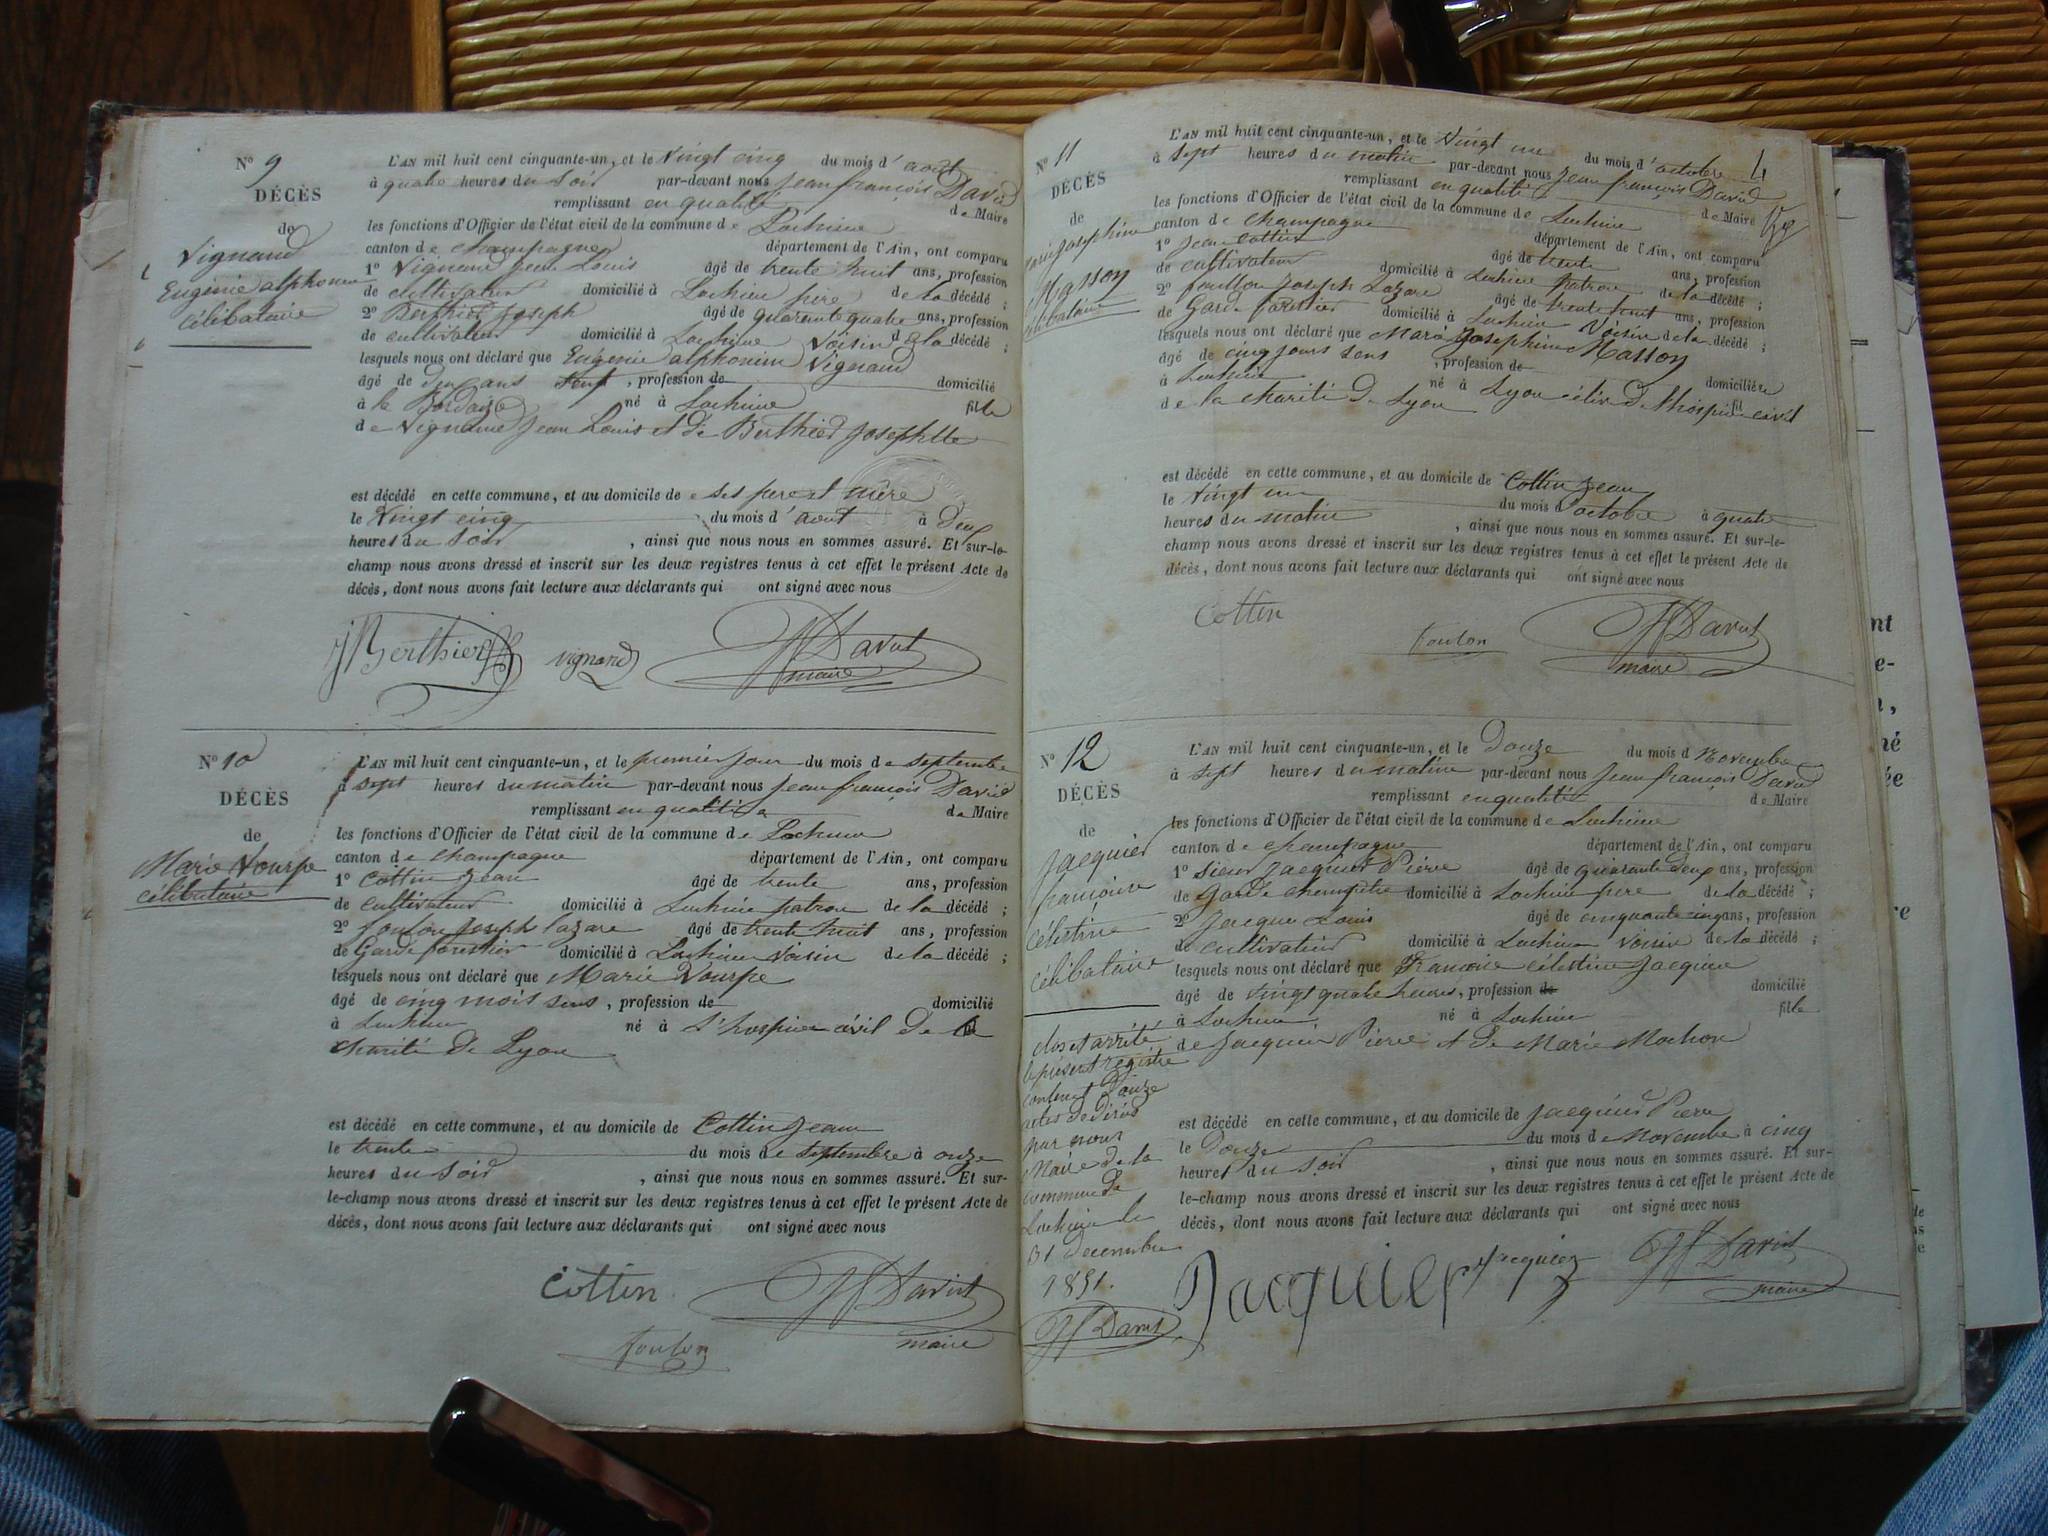 N° 9
DÉCÈS
de
Vignand
Eugénie alphonsine
célibataire
L'AN mil huit cent cinquante-un, et le Vingt cinq du mois d'août
à quatre heures du soir par-devant nous Jean françois David
remplissant en qualité de Maire
les fonctions d'Officier de l'état civil de la commune de Lochieu
canton de champagne département de l'Ain, ont comparu
1° Vignand Jean Louis âgé de trente huit ans, profession
de cultivateur domicilié à Lochieu père de la décédé ;
2° Berthier Joseph âgé de quarante quatre ans, profession
de cultivateur domicilié à Lochieu Voisin de la décédé ;
lesquels nous ont déclaré que Eugénie alphonsine Vignand
âgé de deux ans , profession de domicilié
à la né à Lochieu fille
de Vignand Jean Louis et de Berthier Josephte
est décédé en cette commune, et au domicile de ses père et mère
le Vingt cinq du mois d'août à Deux
heures du soir , ainsi que nous nous en sommes assuré. Et sur-le-
champ nous avons dressé et inscrit sur les deux registres tenus à cet effet le présent Acte de
décès, dont nous avons fait lecture aux déclarants qui ont signé avec nous
JBerthier vignand JF David
maire
N° 10
DÉCÈS
de
Marie Vourpe
célibataire
L'AN mil huit cent cinquante-un, et le premier jour du mois de septembre
à sept heures du matin par-devant nous Jean françois David
remplissant en qualité de Maire
les fonctions d'Officier de l'état civil de la commune de Lochieu
canton de champagne département de l'Ain, ont comparu
1° Cottin Jean âgé de trente ans, profession
de cultivateur domicilié à Lochieu patron de la décédé ;
2° foulon Joseph Lazare âgé de trente huit ans, profession
de Garde forestier domicilié à Lochieu Voisin de la décédé ;
lesquels nous ont déclaré que Marie Vourpe
âgé de cinq mois sens , profession de domicilié
à Lochieu né à L'hospice civil de la
charité de Lyon
est décédé en cette commune, et au domicile de Cottin Jean
le trente du mois de septembre à onze
heures du soir , ainsi que nous nous en sommes assuré. Et sur-
le-champ nous avons dressé et inscrit sur les deux registres tenus à cet effet le présent Acte de
décès, dont nous avons fait lecture aux déclarants qui ont signé avec nous
Cottin JF David
foulon maire
4
N° 11
DÉCÈS
de
Josephine
Masson
célibataire
L'AN mil huit cent cinquante-un, et le Vingt un du mois d'octobre
à sept heures du matin par-devant nous Jean françois David
remplissant en qualité de Maire
les fonctions d'Officier de l'état civil de la commune de Lochieu
canton de champagne département de l'Ain, ont comparu
1° Jean Cottin âgé de trente ans, profession
de cultivateur domicilié à Lochieu patron de la décédé ;
2° foullon Joseph Lazare âgé de trente huit ans, profession
de Garde forestier domicilié à Lochieu Voisin de la décédé ;
lesquels nous ont déclaré que Marie Josephine Masson
âgé de cinq jours sens , profession de domicilié
à Lochieu né à Lyon élève de l'hospice civil
de la charité de Lyon
est décédé en cette commune, et au domicile de Cottin Jean
le Vingt un du mois d'octobre à quatre
heures du matin , ainsi que nous nous en sommes assuré. Et sur-le-
champ nous avons dressé et inscrit sur les deux registres tenus à cet effet le présent Acte de
décès, dont nous avons fait lecture aux déclarants qui ont signé avec nous
Cottin foulon JF David
maire
N° 12
DÉCÈS
de
Jacquier
françoise
célestine
célibataire
L'AN mil huit cent cinquante-un, et le Douze du mois de Novembre
à sept heures du matin par-devant nous Jean françois David
remplissant en qualité de Maire
les fonctions d'Officier de l'état civil de la commune de Lochieu
canton de champagne département de l'Ain, ont comparu
1° sieur Jacquier Pierre âgé de quarante deux ans, profession
de Garde champêtre domicilié à Lochieu père de la décédé ;
2° Jacquier Louis âgé de cinquante cinq ans, profession
de cultivateur domicilié à Lochieu Voisin de la décédé ;
lesquels nous ont déclaré que françoise célestine Jacquier
âgé de vingt quatre heures, profession de domicilié
à Lochieu né à Lochieu fille
de Jacquier Pierre et de Marie Mochon
est décédé en cette commune, et au domicile de Jacquier Pierre
le Douze du mois de Novembre à cinq
heures du soir , ainsi que nous nous en sommes assuré. Et sur-
le-champ nous avons dressé et inscrit sur les deux registres tenus à cet effet le présent Acte de
décès, dont nous avons fait lecture aux déclarants qui ont signé avec nous
Jacquier Jacquier JF David
maire
clos et arrêté
le présent registre
contenant Douze
actes de Décès
par nous
Maire de la
commune de
Lochieu le
31 décembre
1851.
JF David